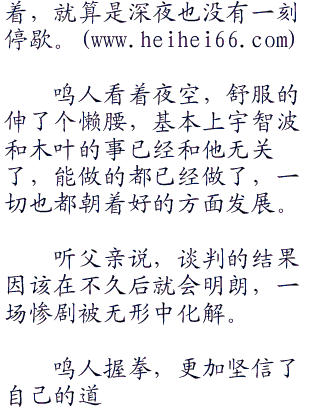 着，就算是深夜也没有一刻
停歇。(www.heihei66.com)
鸣人看着夜空，舒服的
伸了个懒腰，基本上宇智波
和木叶的事已经和他无关
了，能做的都已经做了，一
切也都朝着好的方面发展。
听父亲说，谈判的结果
因该在不久后就会明朗，一
场惨剧被无形中化解。
鸣人握拳，更加坚信了
自己的道